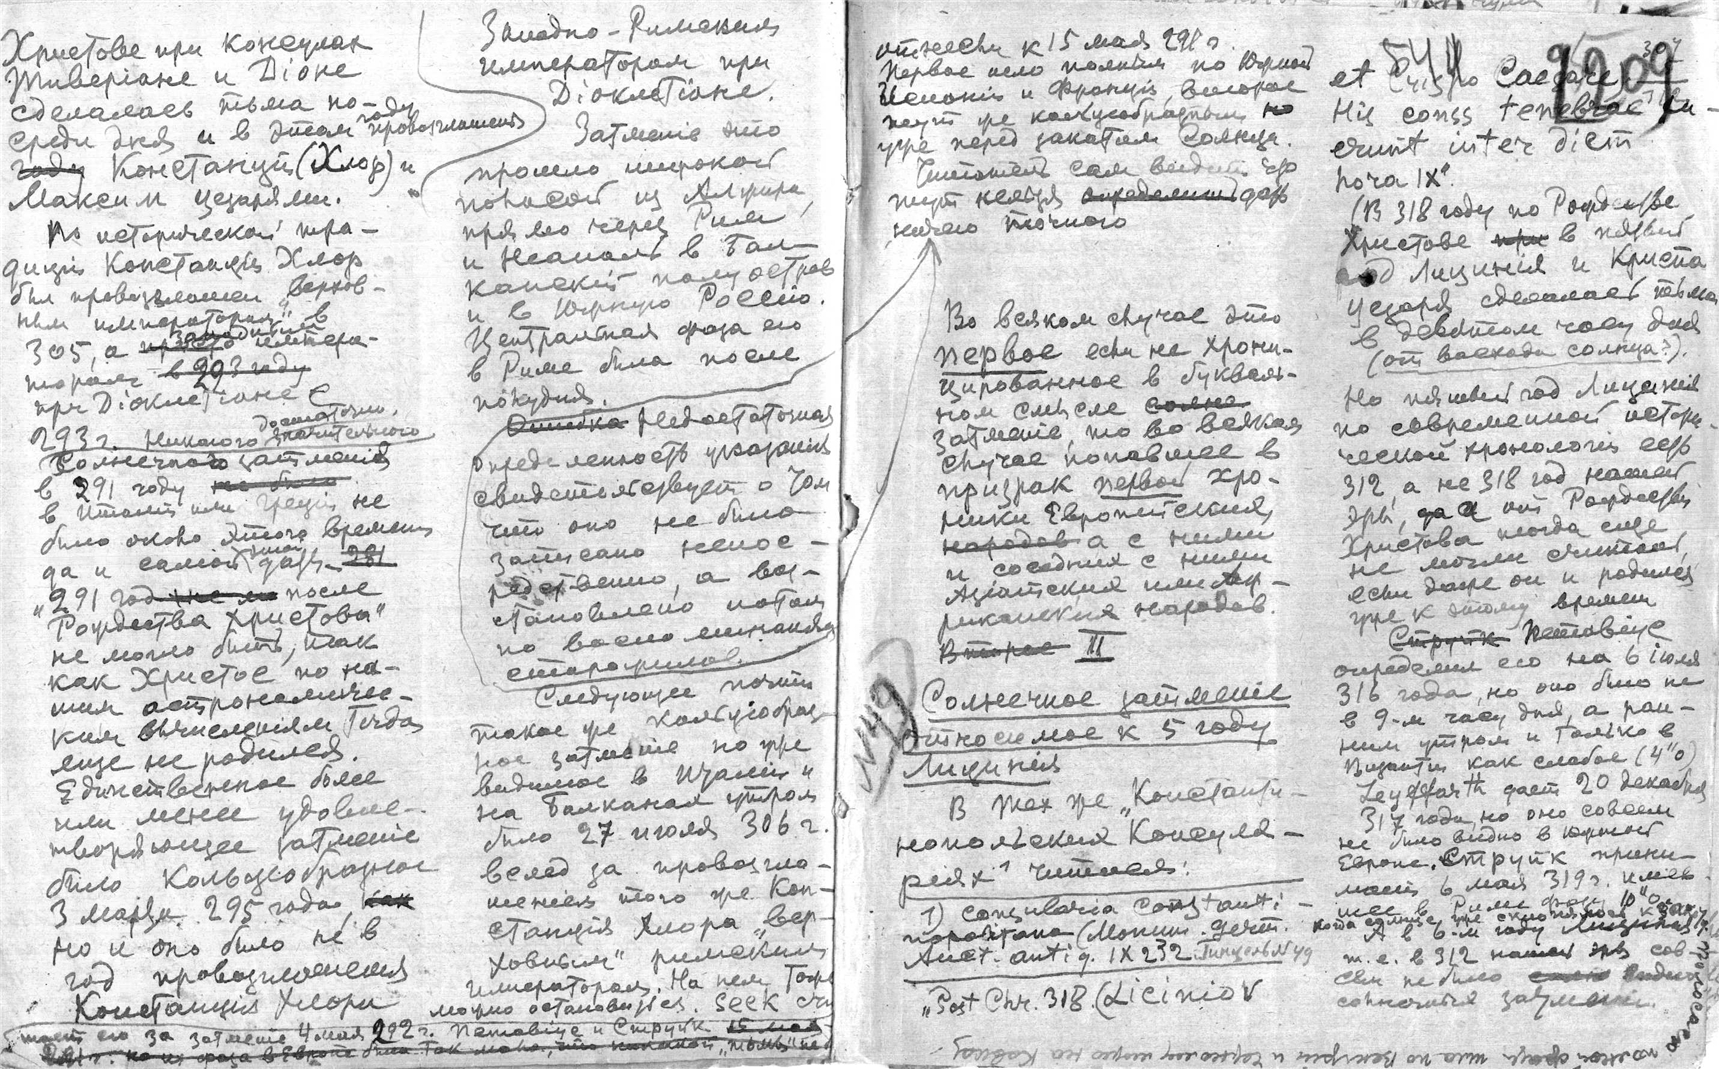 Христове при консулах
Тивериане и Діоне
сделалась тьма по-
среди дня и в этом году провозглашены
Констанций (Хлор) и
Максим цезарями.
По исторической тра-
диціи Констанцій Хлор
был провозглашен „верхов-
ным императором" в
305, а западным импера-
тором в 293 году
при Діоклетіане
293 г. Никакого достаточно значительного
солнечного затменія
в 291 году не было
в Италіи или Греціи не
было около этого времени
да и самой даты 281
„291 год после
Рождества Христова"
не могло быть, так
как Христос по на-
шим астрономичес-
ким вычисленіям тогда
еще не родился.
Единственное более
или менее удовле-
творяющее затменіе
было кольцеобразное
3 марта 295 года, как
но и оно было не в
год провозглашения
Констанція Хлора
Западно-Римским
императором при
Діоклетіане.
Затменіе это
прошло широкой
полосой из Африки
прямо через Рим
и Неаполь в Бал-
канскій полуостров
и в Южную Россію.
Центральная фаза его
в Риме была после
полудня.
Ошибка Недостаточная
определенность указания
свидетельствует о том
что оно не было
записано непос-
редственно, а вос-
становлено потом
по воспоминаниям
старожилов.
Следующее почти
такое же кольцеобраз-
ное затменіе но уже
видимое в Италіи и
на Балканах утром
было 27 июля 306 г.
вслед за провозгла-
шением того же Кон-
станція Хлора „вер-
ховным" римским
императором. На нем тоже
можно остановиться. Seek счи
тает его за затменіе 4 мая 292 г. Петовіус и Струйк 15 мая
291 г. но их фаза в Европе была так мала, что никакой „тьмы" не
отнести к 15 мая 291 г.
Первое шло полным по Южной
Испаніи и Франціи, второе
тут же кольцеобразным но
уже перед закатом Солнца.
Читатель сам видит что
тут нельзя определить дать
ничего точного
Во всяком случае это
первое если не хрони-
цированное в букваль-
ном смысле солне
затменіе, то во всяком
случае попавшее в
призрак первой хро-
ники Европейских
народов а с ними
и соседних с ними
Азіатских или Аф-
риканских народов.
Второе II
№49
Солнечное затменіе
относимое к 5 году
Лицинія
В тех же „Константи-
нопольских Консуля-
ріях¹ читаем:
1) Consularia Constanti-
nopolitana (Monum. Germ.
Auct. antiq. IX 232. Гинцель № 49
„Post Chr. 318 (Licinio V
544 1209
et Crispo Caesare
His conss tenebrae fu-
erunt inter diem
hora IX".
(В 318 году по Рождестве
Христове при в пятый
год Лицинія и Криспа
цезаря сделалась тьма
в девятом часу дня
(от восхода солнца?).
Но пятый год Лицинія
по современной истори-
ческой хронологіи есть
312, а не 318 год нашей
эры, да и от Рождества
Христова тогда еще
не могли считать,
если даже он и родился
уже к этому времени
Струйк Петовіус
определил его на 6 іюля
316 года, но оно было не
в 9-м часу дня, а ран-
ним утром и только в
Византіи как слабое (4"0)
Seyffarth дает 20 декабря
317 года но оно совсем
не было видно в южной
Европе. Струйк прини-
мает 6 мая 319 г. имев-
шее в Риме фазу 10"0
когда солнце уже склонялось к закату
А в 5-м году Лицинія
т. е. в 312 нашей эры сов
сем не было видно
солнечных затменій.